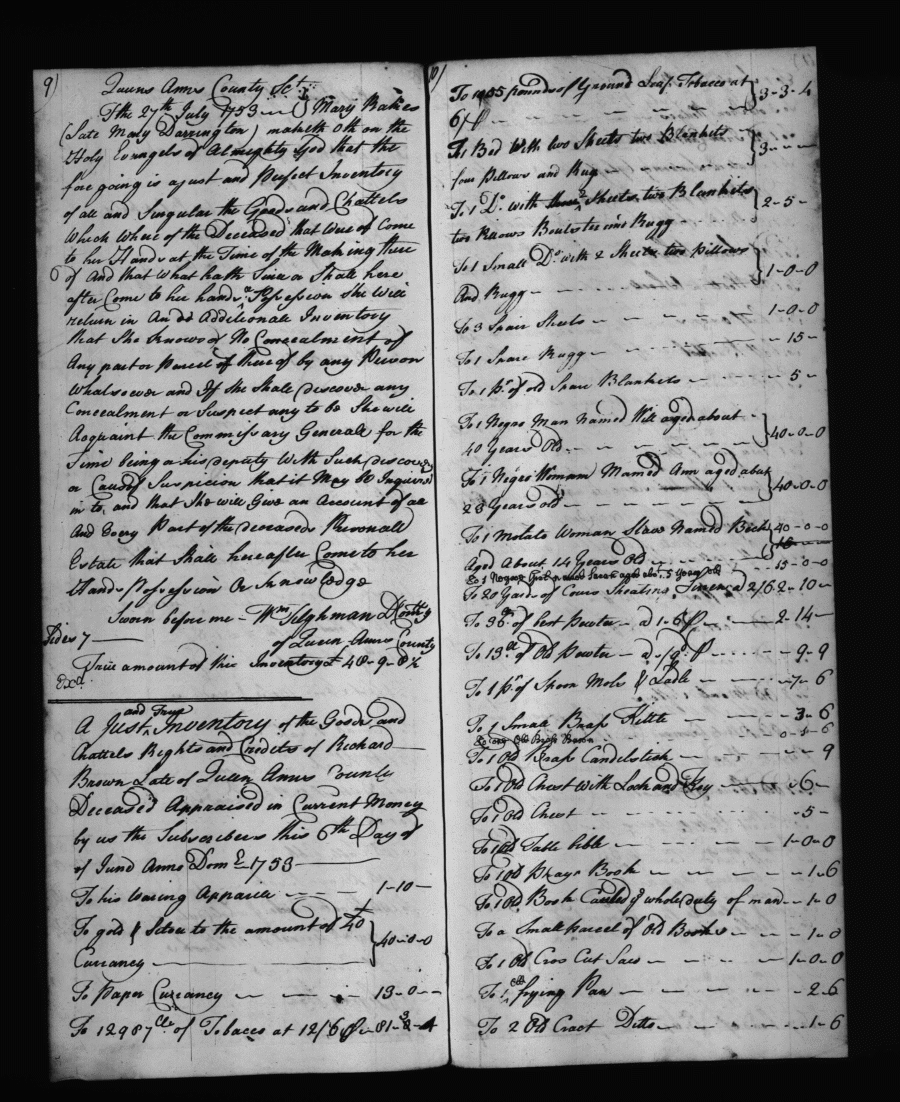 9)
Queens Anns County Sct
The 27th July 1753 Mary Bakies
(Late Mary Darrington) maketh Oth on the
Holy Evangels of Almighty God that the
fore going is a just and Perfect Inventory
of all and Singular the Goods and Chattels
Which Where of the Deceased that Were or Come
to her Hands at the Time of the Making there
of And that What hath Since or Shall here
after Come to her hands or Possession She Will
return in An Additionale Inventory
that She Knows of No Concealment of
Any part or Parcel of thereof by any Person
Whatsoever and If She Shall discover any
Concealment or Suspect any to be She will
Acquaint the Commissary Generale for the
Time being or his deputy With Such discovery
or Cause of Suspicion that it May be Inquired
in to and that She will Give an Account of all
And Every Part of the deceaseds Personall
Estate that Shall hereafter Come to her
Hands Possession Or Knowledge
Sworn before me - Wm Tilghman D Comry
Sides 7 of Queen Anns County
True amount of this Inventory £ 48-9-8½
Exd.
A Just and True Inventory of the Goods and
Chattels Rights and Creditts of Richard
Brown Late of Queen Anns County
Deceased Appraised in Current Money
by us the Subscribers this 6th Day of
of Anno Dom 1753
To his wearing Apparile - - - 1-10-
To gold & Silver to the amount of £40
Currancy 40-0-0
To Paper Currancy - - - 13-0-
To 12987 of Tobacco at 12/6 P - 81-3-4
10)
To 1055 pounds of Ground Leaf Tobacco at
6/ P - - - 3-3-4
To 1 Bed With two Sheets two Blankets
four Pillows and Rug 3 - -
To 1 Do. with 2 Sheets two Blankets
two Pillows Rugg - - 2-5-
To 1 Small Do. with 2 Sheets two Pillows
And Rugg - - - 1-0-0
To 3 Spair Sheets - - - 1-0-0
To 1 Spare Rugg - - - 15 -
To 1 Pr. of old Spare Blankets - - - 5 -
To 1 Negro Man Named Will aged about
40 Years Old - - - 40-0-0
To 1 Negro Womam Named Ann aged abut
28 Years old - - - 40-0-0
To 1 Molato Woman Slave Named Beck 40-0-0
Aged About 14 Years Old
To 1 Negroe Girl named aged abt. 5 Years old 15-0-0
To 20 Yards of Cours Sheating Linen a 2/6 2-10-
To 36 of best Pewter - a 1-6 P - - 2-14-
To 13 of Old Pewter - a 9d. P - - - 9-9
To 1 Pr. of Spoon Mols & Ladle - - 7-6
To 1 Small Brass Kittle - - - 3-6
To one Old Brass 0-5-6
To 1 Old Brass Candelstick - - - 9
To 1 Old Chest With Lock and Key - - 6 -
To 1 Old Chest - - - 5 -
To 1 old Table bible - - - 1-0-0
To 1 old Praye Book - - - 1-6
To 1 Old Book Cauled ye whole duty of man - - 1-0
To a Small parcel of Old Books - - - 1-0
To 1 Old Cros Cut Saw - - - 1-0-0
To 1 old frying Pan - - - 2-6
To 2 Old Cract Ditto - - - 1-6